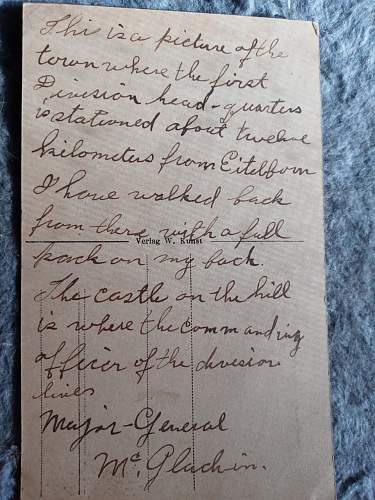 This is a picture of the
town where the first
Division head-quarters
is stationed about twelve
kilometers from Eitelborn
I have walked back
from there with a full
Verlag W. Kunst
pack on my back.
The castle on the hill
is where the commanding
officer of the division
lives
Major-General
Mc. Glachin.